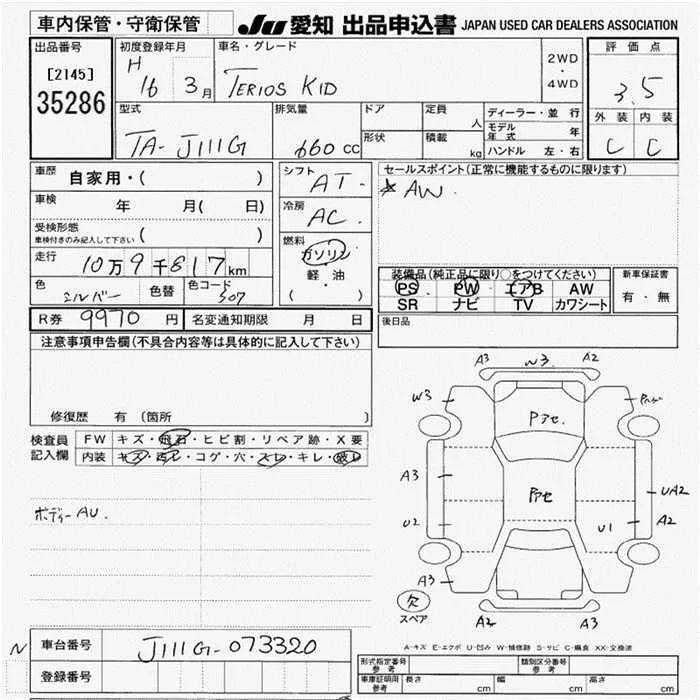 車内保管・守衛保管
JU 愛知 出品申込書 JAPAN USED CAR DEALERS ASSOCIATION
出品番号
[2145]
35286
初度登録年月
H
16 3月
車名・グレード
TERIOS KID
2WD
・
4WD
評価点
3.5
外装 内装
C C
型式
TA-J111G
排気量
660cc
ドア
形状
定員 人
積載 kg
ディーラー・並行
モデル年式 年
ハンドル 左・右
車歴 自家用・( )
車検 年 月( 日)
受検形態
車検付きのみ記入して下さい ( )
走行 10万9千817km
色 シルバー 色替 色コード S07
シフト AT.
冷房 AC.
燃料
ガソリン
軽油
( ・ )
セールスポイント(正常に機能するものに限ります)
AW.
装備品(純正品に限り○をつけてください)
PS PW エアB AW
SR ナビ TV カワシート
新車保証書
有・無
R券 9970 円 名変通知期限 月 日
後日品
注意事項申告欄(不具合内容等は具体的に記入して下さい)
修復歴 有 (箇所 )
検査員記入欄
FW キズ・飛石・ヒビ割・リペア跡・X要
内装 キズ・汚レ・コゲ・穴・スレ・キレ・破レ
ボディーAU.
A3 W3. A2
W3
Pアセ.
A3
Pアセ
UA2
U2 U1 A2
A3
欠
スペア
A2 A3
A-キズ E-エクボ U-凹み W-補修跡 S-サビ C-腐食 XX-交換済
N
車台番号 J111G-073320
登録番号
形式指定番号 参考
類別区分番号 参考
車庫証明用 参考
長さ cm 幅 cm 高さ cm